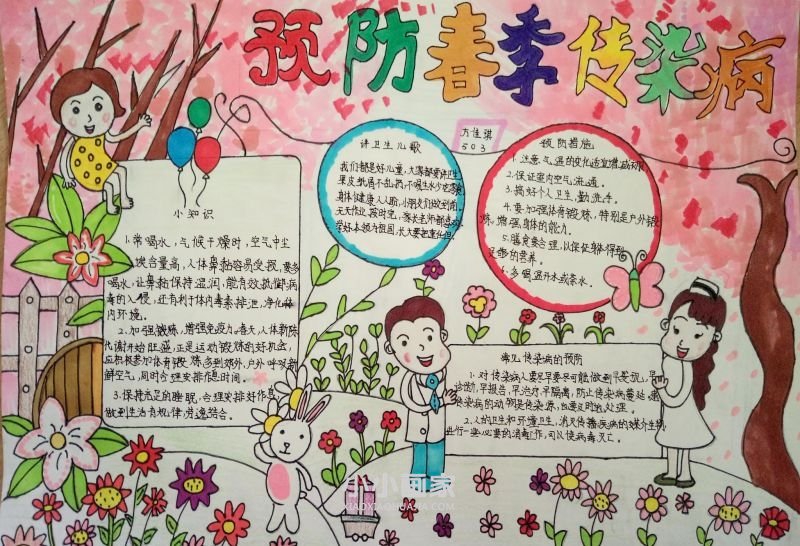 预防春季传染病
方佳琪
503
小知识
1.常喝水，气候干燥时，空气中尘
埃含量高，人体鼻黏容易受损，要多
喝水，让鼻黏保持湿润，能有效抵御病
毒的入侵，还有利于体内毒素排泄，净化体
内环境。
2.加强锻炼，增强免疫力。春天，人体新陈
代谢开始旺盛，正是运动锻炼的好机会，
应积极参加体育锻炼，多到郊外、户外呼吸新
鲜空气，同时合理安排作息时间。
3.保持充足的睡眠，合理安排好作息，
做到生活有规律，劳逸结合。
讲卫生儿歌
我们都是好儿童，大家都要讲卫生
果皮纸屑不乱扔，不喝生水少吃零食
身体健康人人夸，小朋友们做到
天天
学好本领为祖国，长大要把重任担。
预防措施
1.注意气温的变化适宜增减衣服
2.保证室内空气流通。
3.搞好个人卫生，勤洗手。
4.要加强体育锻炼，特别是户外锻
炼，增强身体的能力。
5.膳食要合理，以保证身体得到
足够的营养。
6.多喝温开水或茶水。
常见传染病的预防
1.对传染病人要尽早尽可能做到早发现，早
诊断，早报告，早治疗，早隔离，防止传染病蔓延，
传染病的动物是传染源，也要及时的处理。
2.人的卫生和环境卫生，消灭传播疾病的媒介生物，
进行一些必要的消毒工作，可以使病毒灭亡。
小小画家
XIAOXIAOHUAJIA.COM